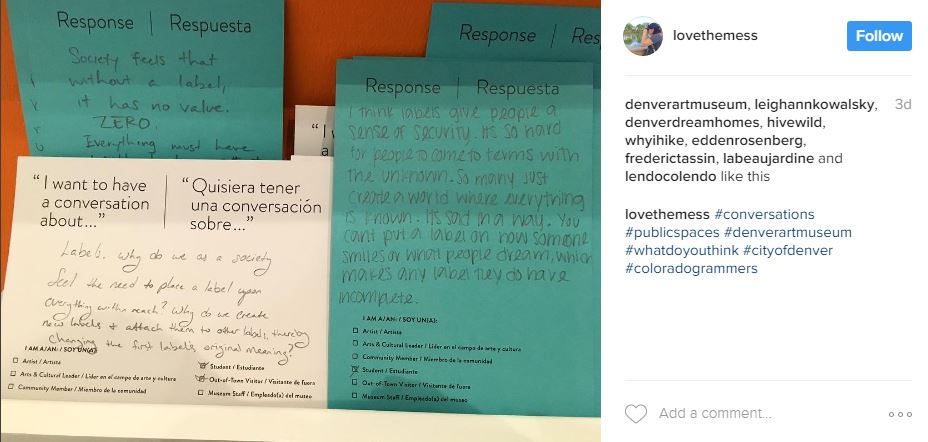 Response | Respuesta
Society feels that
without a label,
it has no value.
ZERO.
Everything must have
Response | Res
“I want to have
a conversation
about...”
“Quisiera tener
una conversación
sobre...”
Labels. Why do we as a society
feel the need to place a label upon
everything within reach? Why do we create
new labels & attach them to other labels, thereby
changing the first label's original meaning?
I AM A/AN: / SOY UN(A):
Artist / Artista
Arts & Cultural Leader / Líder en el campo de arte y cultura
Community Member / Miembro de la comunidad
Student / Estudiante
Out-of-Town Visitor / Visitante de fuera
Museum Staff / Empleado(a) del museo
Response | Respuesta
I think labels give people a
sense of security. Its so hard
for people to come to terms with
the unknown. So many just
create a world where everything
is known. Its sad in a way. You
cant put a label on how someone
smiles or what people dream, which
makes any label they do have
incomplete.
I AM A/AN: / SOY UN(A):
Artist / Artista
Arts & Cultural Leader / Líder en el campo de arte y cultura
Community Member / Miembro de la comunidad
Student / Estudiante
Out-of-Town Visitor / Visitante de fuera
Museum Staff / Empleado(a) del museo
lovethemess
Follow
denverartmuseum, leighannkowalsky, 3d
denverdreamhomes, hivewild,
whyihike, eddenrosenberg,
fredericttassin, labeaujardine and
lendocolendo like this
lovethemess #conversations
#publicspaces #denverartmuseum
#whatdoyouthink #cityofdenver
#coloradogrammers
Add a comment...